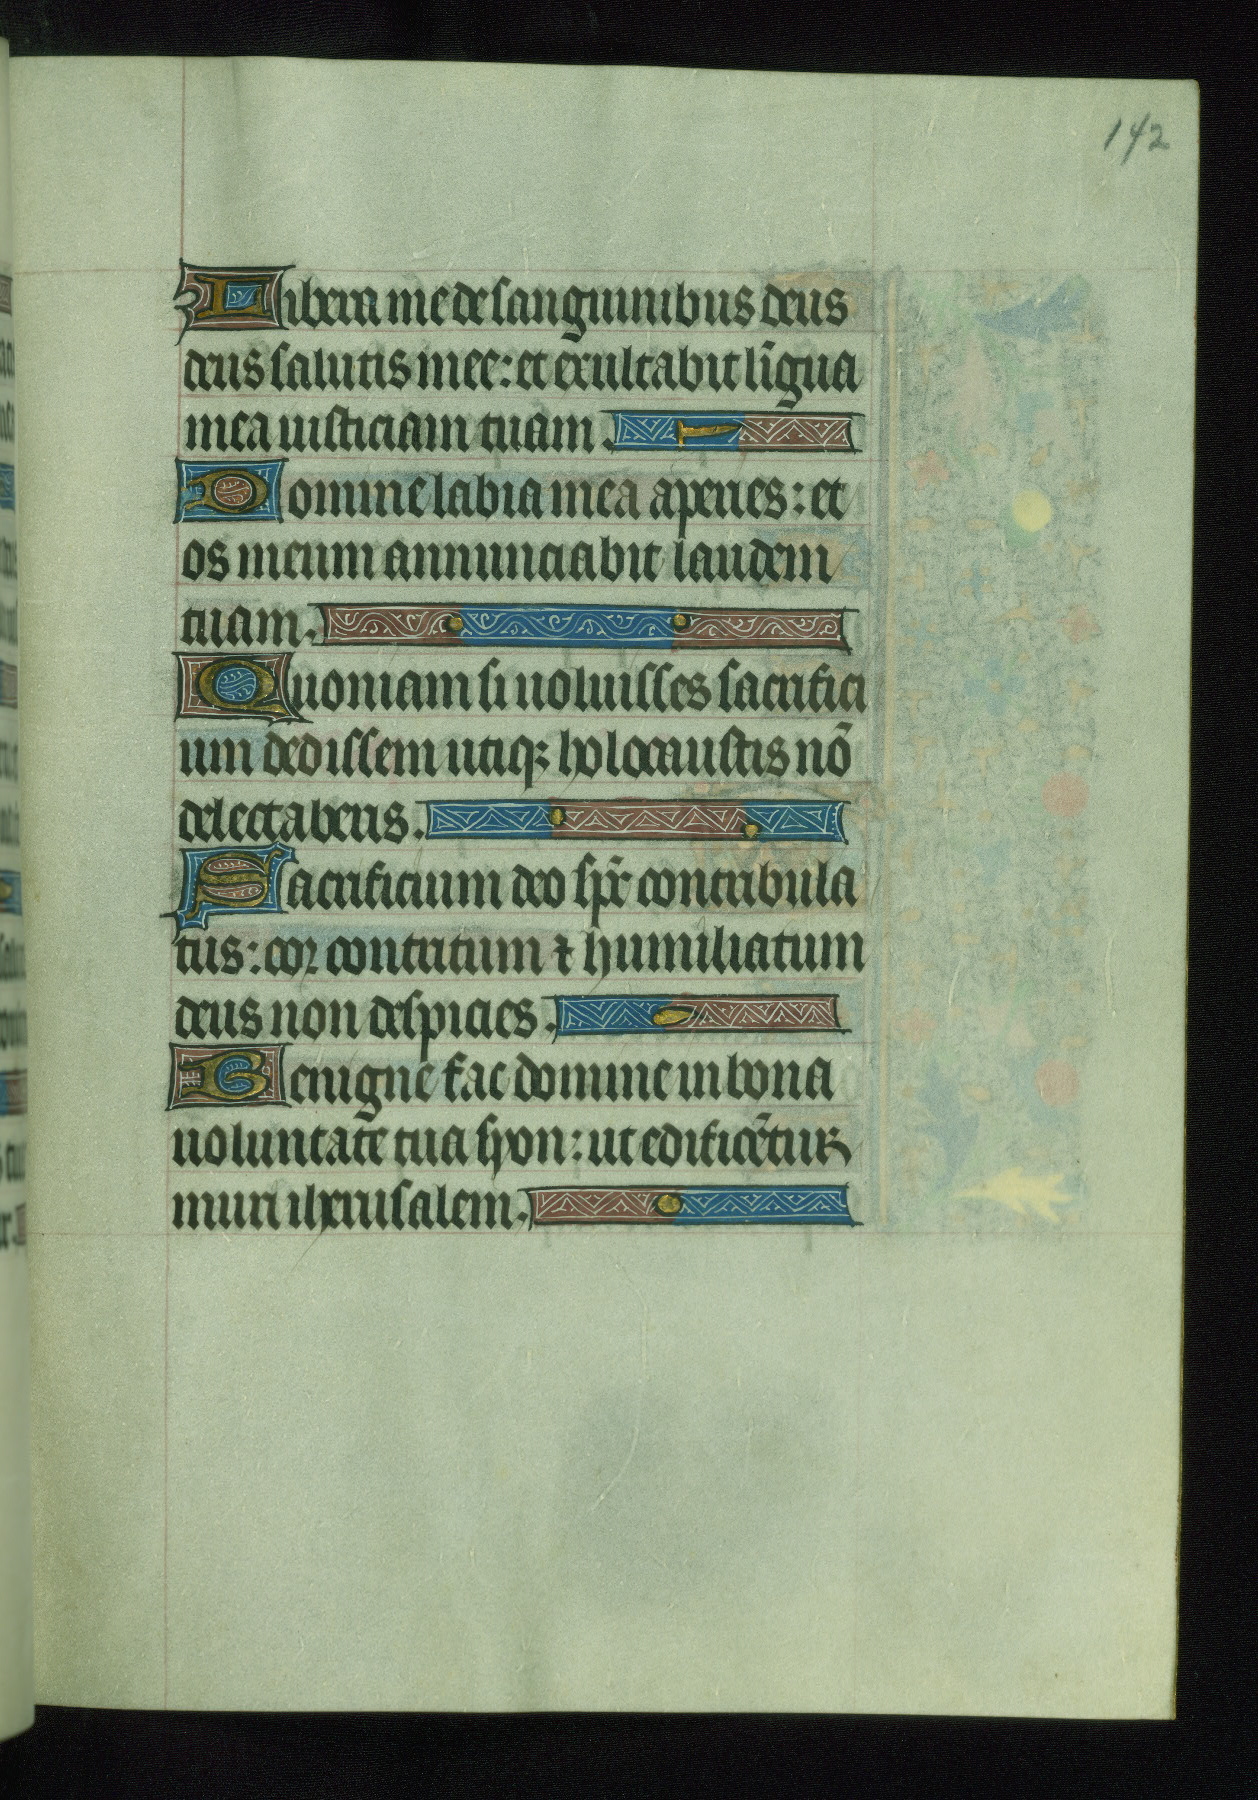 142
Libera me de sanguinibus deus
deus salutis mee: et exultabit līgua
mea iusticiam tuam.
Domine labia mea aperies: et
os meum annunciabit laudem
tuam.
Quoniam si uoluisses sacrifici
um dedissem utiqꝫ holocaustis nō
delectaberis.
Sacrificium deo spr̄ contribula
tus: cor contritum ⁊ humiliatum
deus non despicies.
Benigne fac domine in bona
uoluntate tua syon: ut edificētur
muri iherusalem.